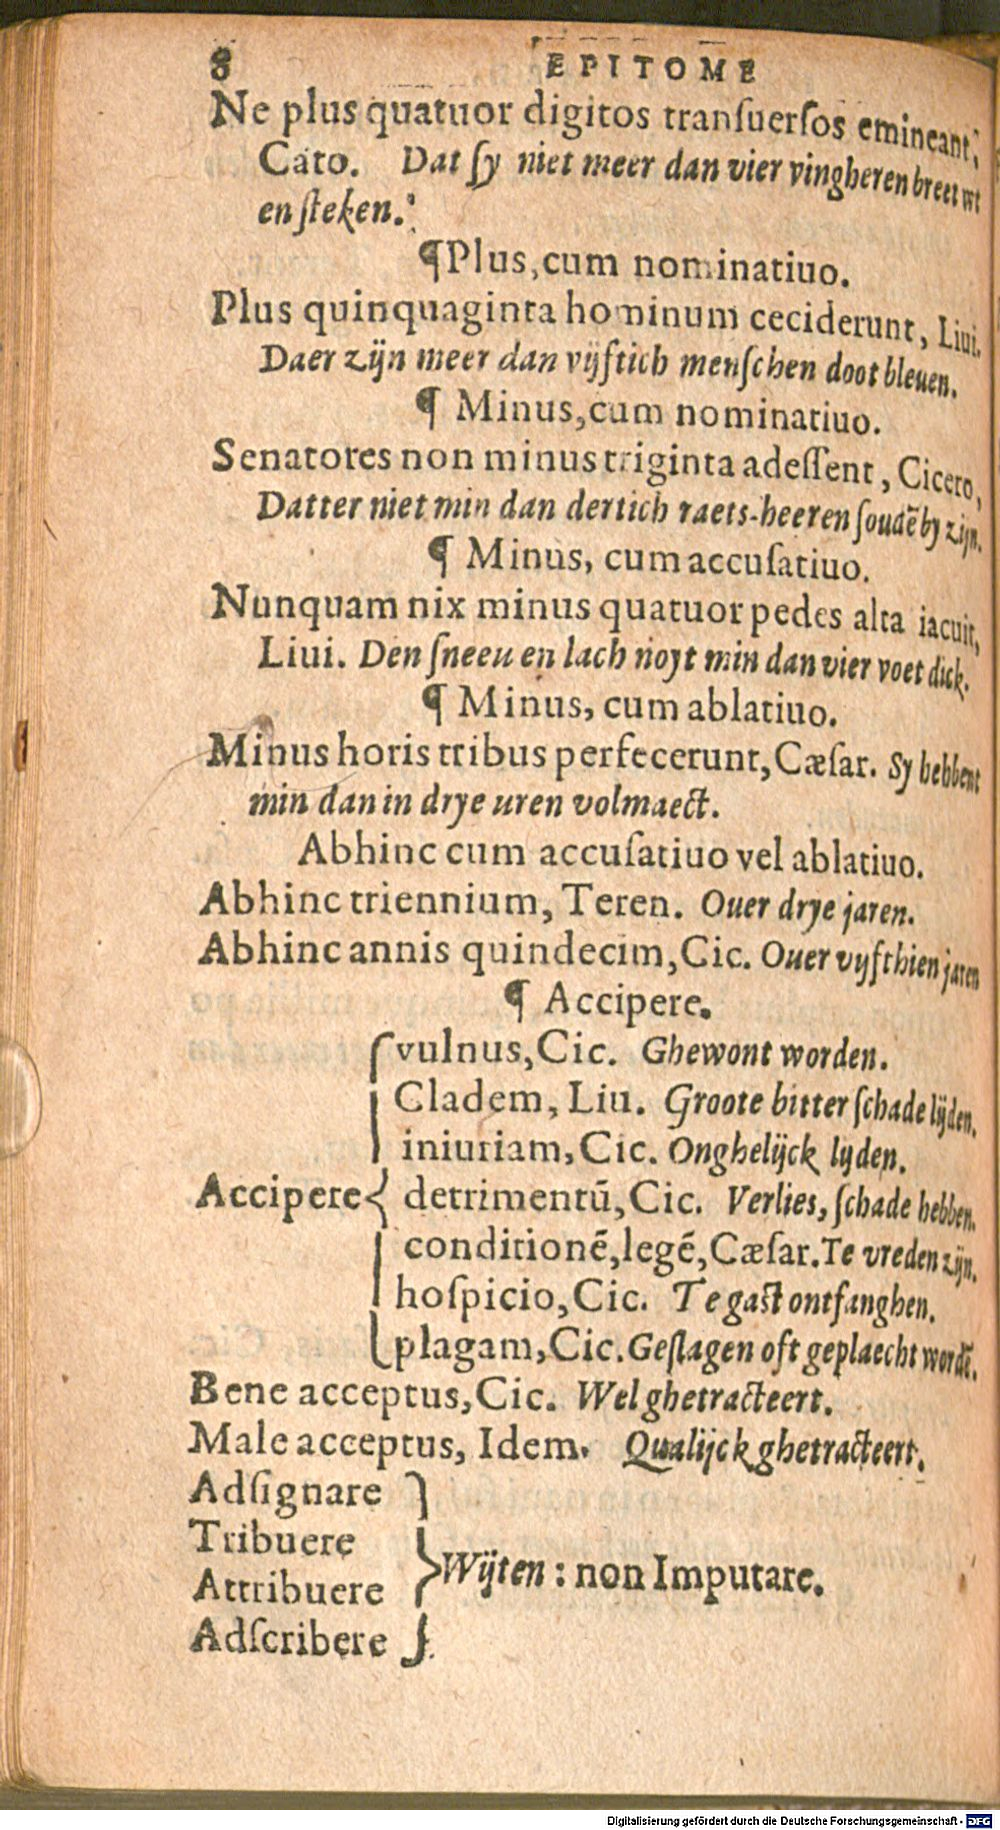 8 EPITOME
Ne plus quatuor digitos tranſuerſos emineant,
Cato. Dat ſy niet meer dan vier vingheren breet wt
en ſteken.
¶Plus, cum nominatiuo.
Plus quinquaginta hominum ceciderunt, Liui.
Daer zijn meer dan vijftich menſchen doot bleuen.
¶ Minus, cum nominatiuo.
Senatores non minus triginta adeſſent, Cicero,
Datter niet min dan dertich raets-heeren ſoudē by zijn.
¶ Minus, cum accuſatiuo.
Nunquam nix minus quatuor pedes alta iacuit,
Liui. Den ſneeu en lach noyt min dan vier voet dick.
¶ Minus, cum ablatiuo.
Minus horis tribus perfecerunt, Cæſar. Sy hebbent
min dan in drye uren volmaect.
Abhinc cum accuſatiuo vel ablatiuo.
Abhinc triennium, Teren. Ouer drye jaren.
Abhinc annis quindecim, Cic. Ouer vyfthien jaren
¶ Accipere.
vulnus, Cic. Ghewont worden.
Cladem, Liu. Groote bitter ſchade lijden.
iniuriam, Cic. Onghelijck lyden.
Accipere detrimentū, Cic. Verlies, ſchade hebben.
conditionē, legē, Cæſar. Te vreden zijn.
hoſpicio, Cic. Te gaſt ontfanghen.
plagam, Cic. Geſlagen oft geplaecht wordē.
Bene acceptus, Cic. Wel ghetracteert.
Male acceptus, Idem. Qualijck ghetracteert.
Adſignare
Tribuere
Attribuere Wijten : non Imputare.
Adſcribere
Digitalisierung gefördert durch die Deutsche Forschungsgemeinschaft - DFG